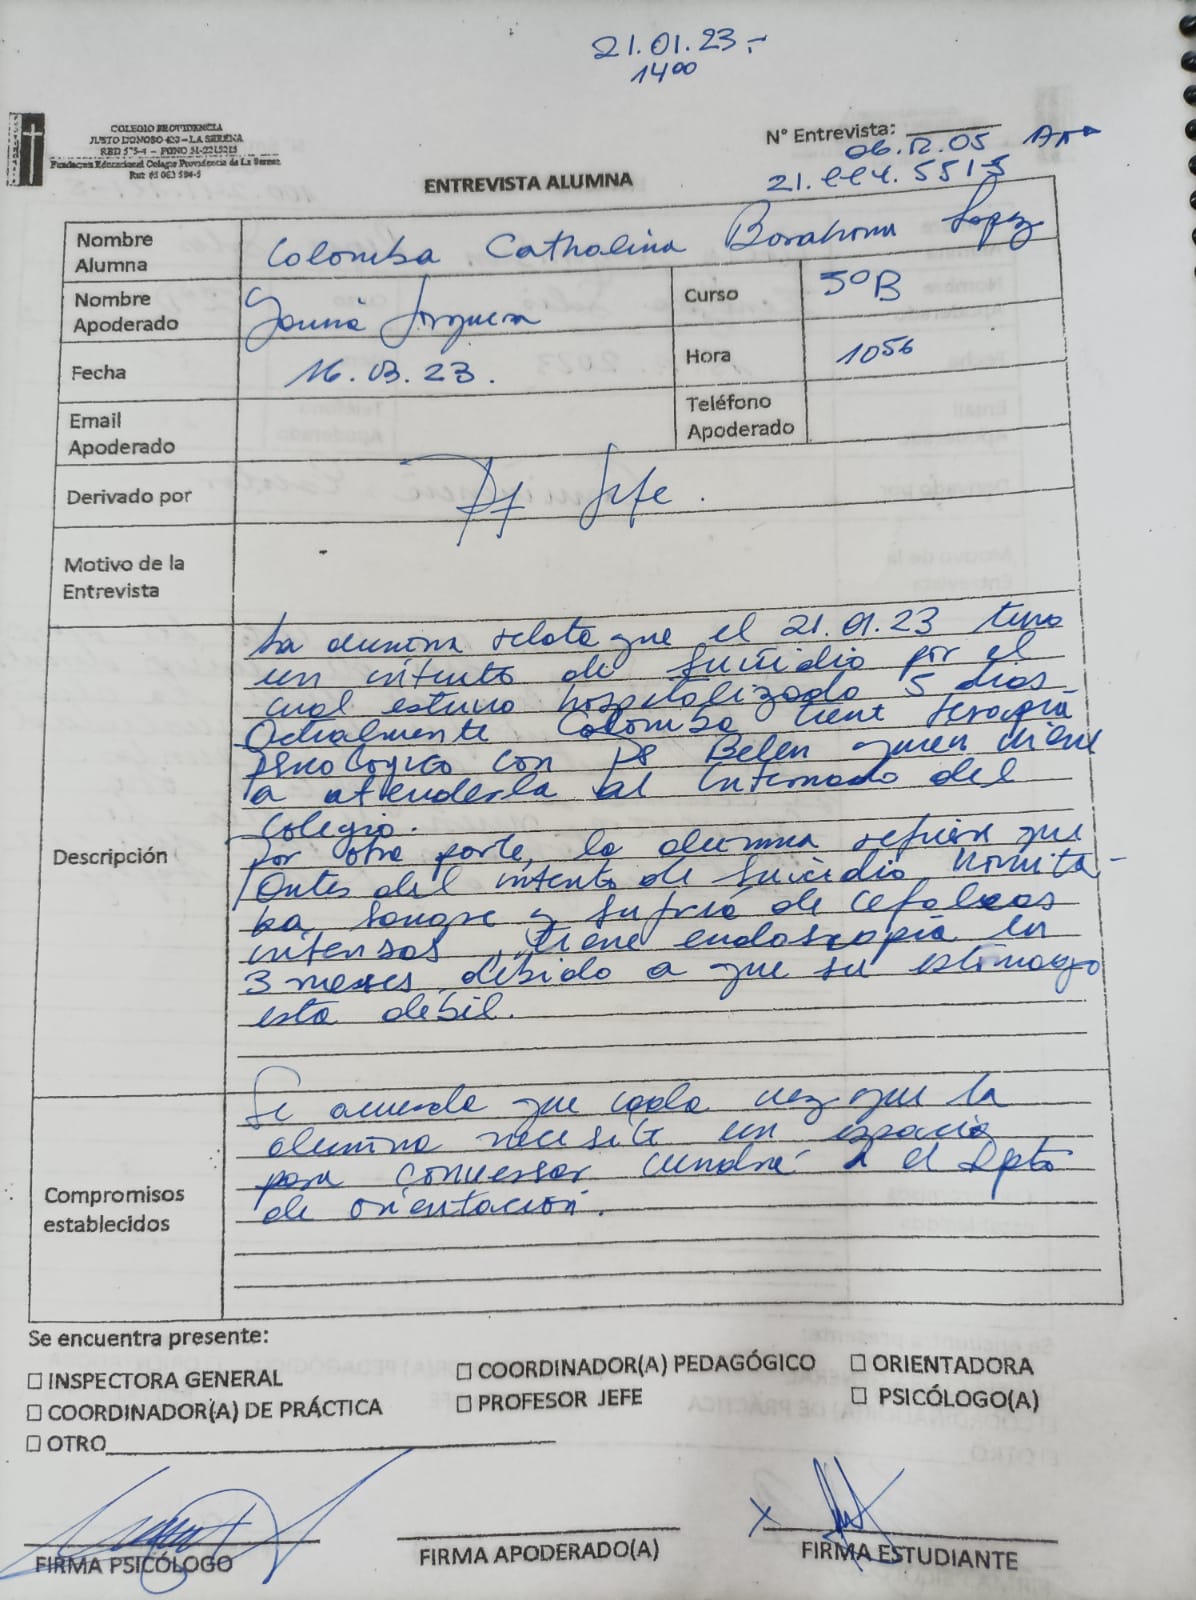 21.01.23.-
14⁰⁰
COLEGIO PROVIDENCIA
JUSTO DONOSO 420 – LA SERENA
Fundación Educacional Colegio Providencia de La Serena
N° Entrevista:
06.12.05
ENTREVISTA ALUMNA
Nombre Alumna Colomba Cathalina Barahona Lopez
Nombre Apoderado
Curso 5°B
Fecha 16.03.23.
Hora 10⁵⁶
Email Apoderado
Teléfono Apoderado
Derivado por Pf Jefe.
Motivo de la Entrevista
Descripción
La alumna relata que el 21.01.23 tuvo
un intento de suicidio por el
cual estuvo hospitalizada 5 días.
Actualmente Colomba tiene terapia
psicologica con Ps Belen quien viene
a atenderla al Internado del
Colegio.
Por otra parte, la alumna refiere que
antes del intento de suicidio vomita-
ba sangre y sufría de cefaleas
intensas, tiene endoscopía en
3 meses, debido a que su estómago
esta débil.
Compromisos establecidos
Se acuerda que cada vez que la
alumna necesite un espacio
para conversar vendrá a el Dpto
de orientación.
Se encuentra presente:
☐ INSPECTORA GENERAL
☐ COORDINADOR(A) PEDAGÓGICO
☐ ORIENTADORA
☐ COORDINADOR(A) DE PRÁCTICA
☐ PROFESOR JEFE
☐ PSICÓLOGO(A)
☐ OTRO
FIRMA PSICÓLOGO
FIRMA APODERADO(A)
X
FIRMA ESTUDIANTE